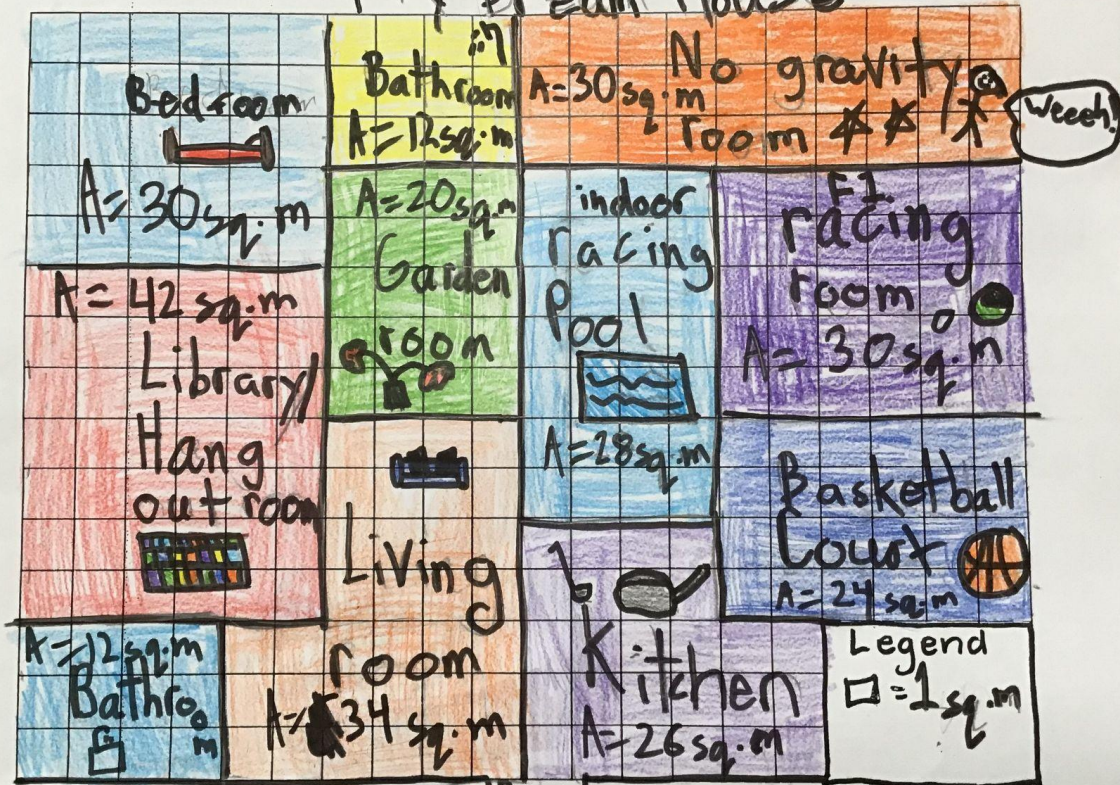 My Dream House
Bedroom
A=30sq.m
Bathroom
A=12sq.m
A=30sq.m
No gravity
room
Weeeh!
A=20sq.m
Garden
room
indoor
racing
Pool
A=28sq.m
F1
racing
room
A=30sq.m
A=42 sq.m
Library/
Hang
out room
Living
room
A=34 sq.m
Basketball
Court
A=24 sq.m
A=12sq.m
Bathroom
Kitchen
A=26sq.m
Legend
=1sq.m